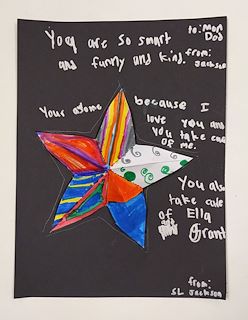 to: Mom
Dad
You are so smart
from:
Jackson
and funny and kind.
Your asome because I
love you and
you take care
of me.
You also
take care
of Ella
and
Grant
from:
SL Jackson